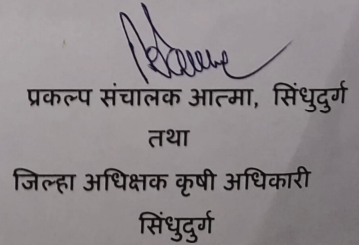 प्रकल्प संचालक आत्मा, सिंधुदुर्ग
तथा
जिल्हा अधिक्षक कृषी अधिकारी
सिंधुदुर्ग